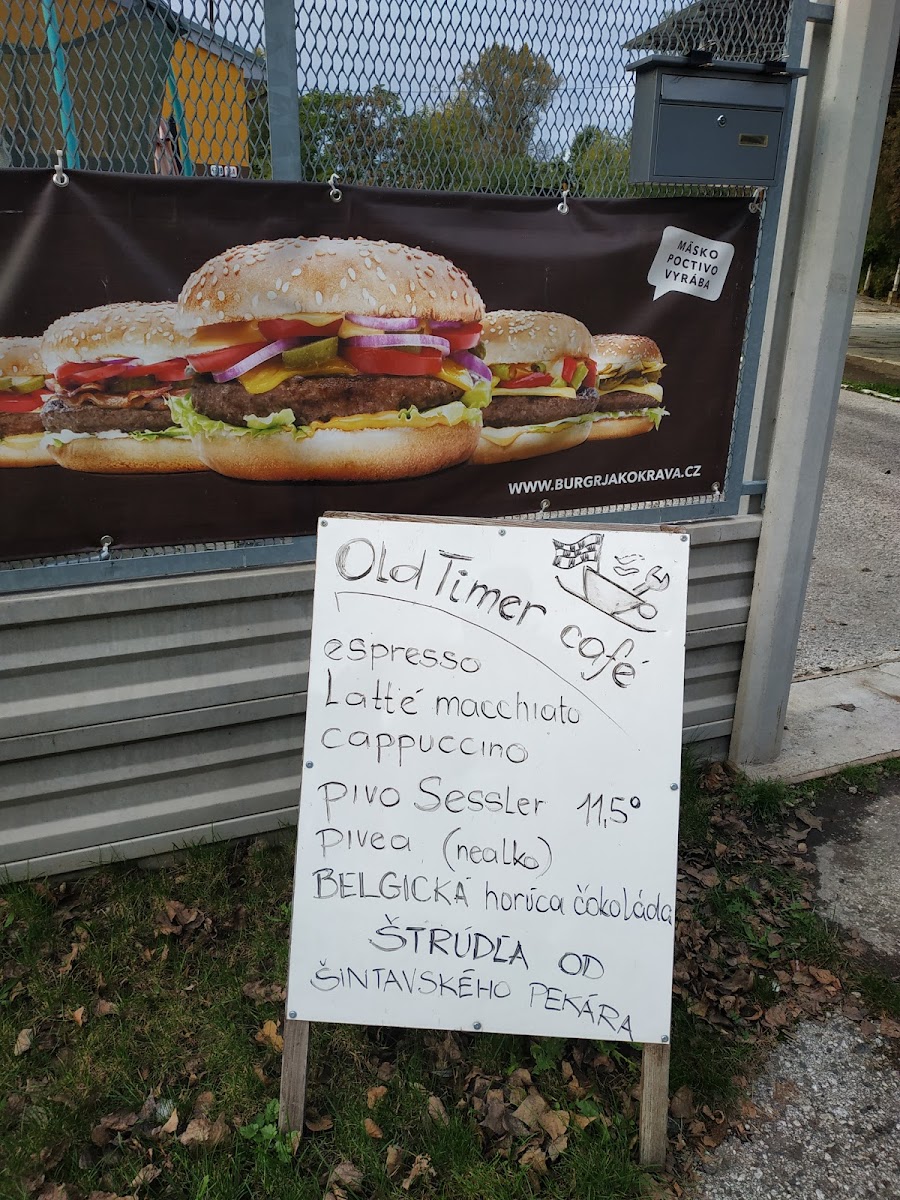 MÄSKO
POCTIVO
VYRÁBA
WWW.BURGRJAKOKRAVA.CZ
Old Timer café
espresso
Latté macchiato
cappuccino
pivo Sessler 11,5°
pivea (nealko)
BELGICKÁ horúca čokoláda
ŠTRÚDĽA OD
ŠINTAVSKÉHO PEKÁRA